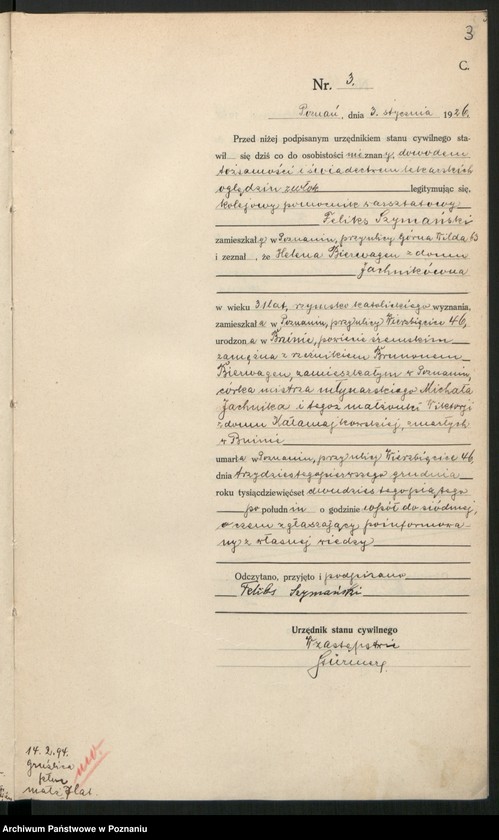 3
C.
Nr. 3.
Poznań, dnia 3. stycznia 1926.
Przed niżej podpisanym urzędnikiem stanu cywilnego sta-
wił się dziś co do osobistości nieznany, dowodem
tożsamości i świadectwem lekarskich
oględzin zwłok legitymując się,
kolejowy pomocnik warsztatowy
Feliks Szymański
zamieszkały w Poznaniu, przy ulicy Górna Wilda
i zeznał, że Helena Bierwagen z domu
Jachnikówna
w wieku 31 lat, rzymsko katolickiego wyznania,
zamieszkała w Poznaniu, przy ulicy Wierzbięcice 46,
urodzona w Bninie, powiecie śremskim
zamężna z rzeźnikiem Brunonem
Bierwagen, zamieszkałym w Poznaniu,
córka mistrza młynarskiego Michała
Jachnika i tegoż małżonki Wiktorji
z domu zmarłych
w Bninie
umarła w Poznaniu, przy ulicy Wierzbięcice 46,
dnia trzydziestego pierwszego grudnia
roku tysiącdziewięćset dwudziestego piątego
po południu o godzinie wpół do siódmej,
o czem zgłaszający poinformowa-
ny z własnej wiedzy
Odczytano, przyjęto i podpisano
Feliks Szymański
Urzędnik stanu cywilnego
W zastępstwie
14. 2. 94.
gruźlica
płuc
małż. 7 lat.
Archiwum Państwowe w Poznaniu